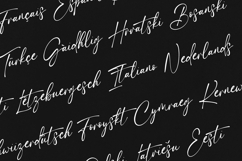 Français Español
Türkçe Gàidhlig Hrvatski Bosanski
Lëtzebuergesch Italiano Nederlands
Schwizerdütsch Føroyskt Cymraeg Kernewek
Latviešu Eesti